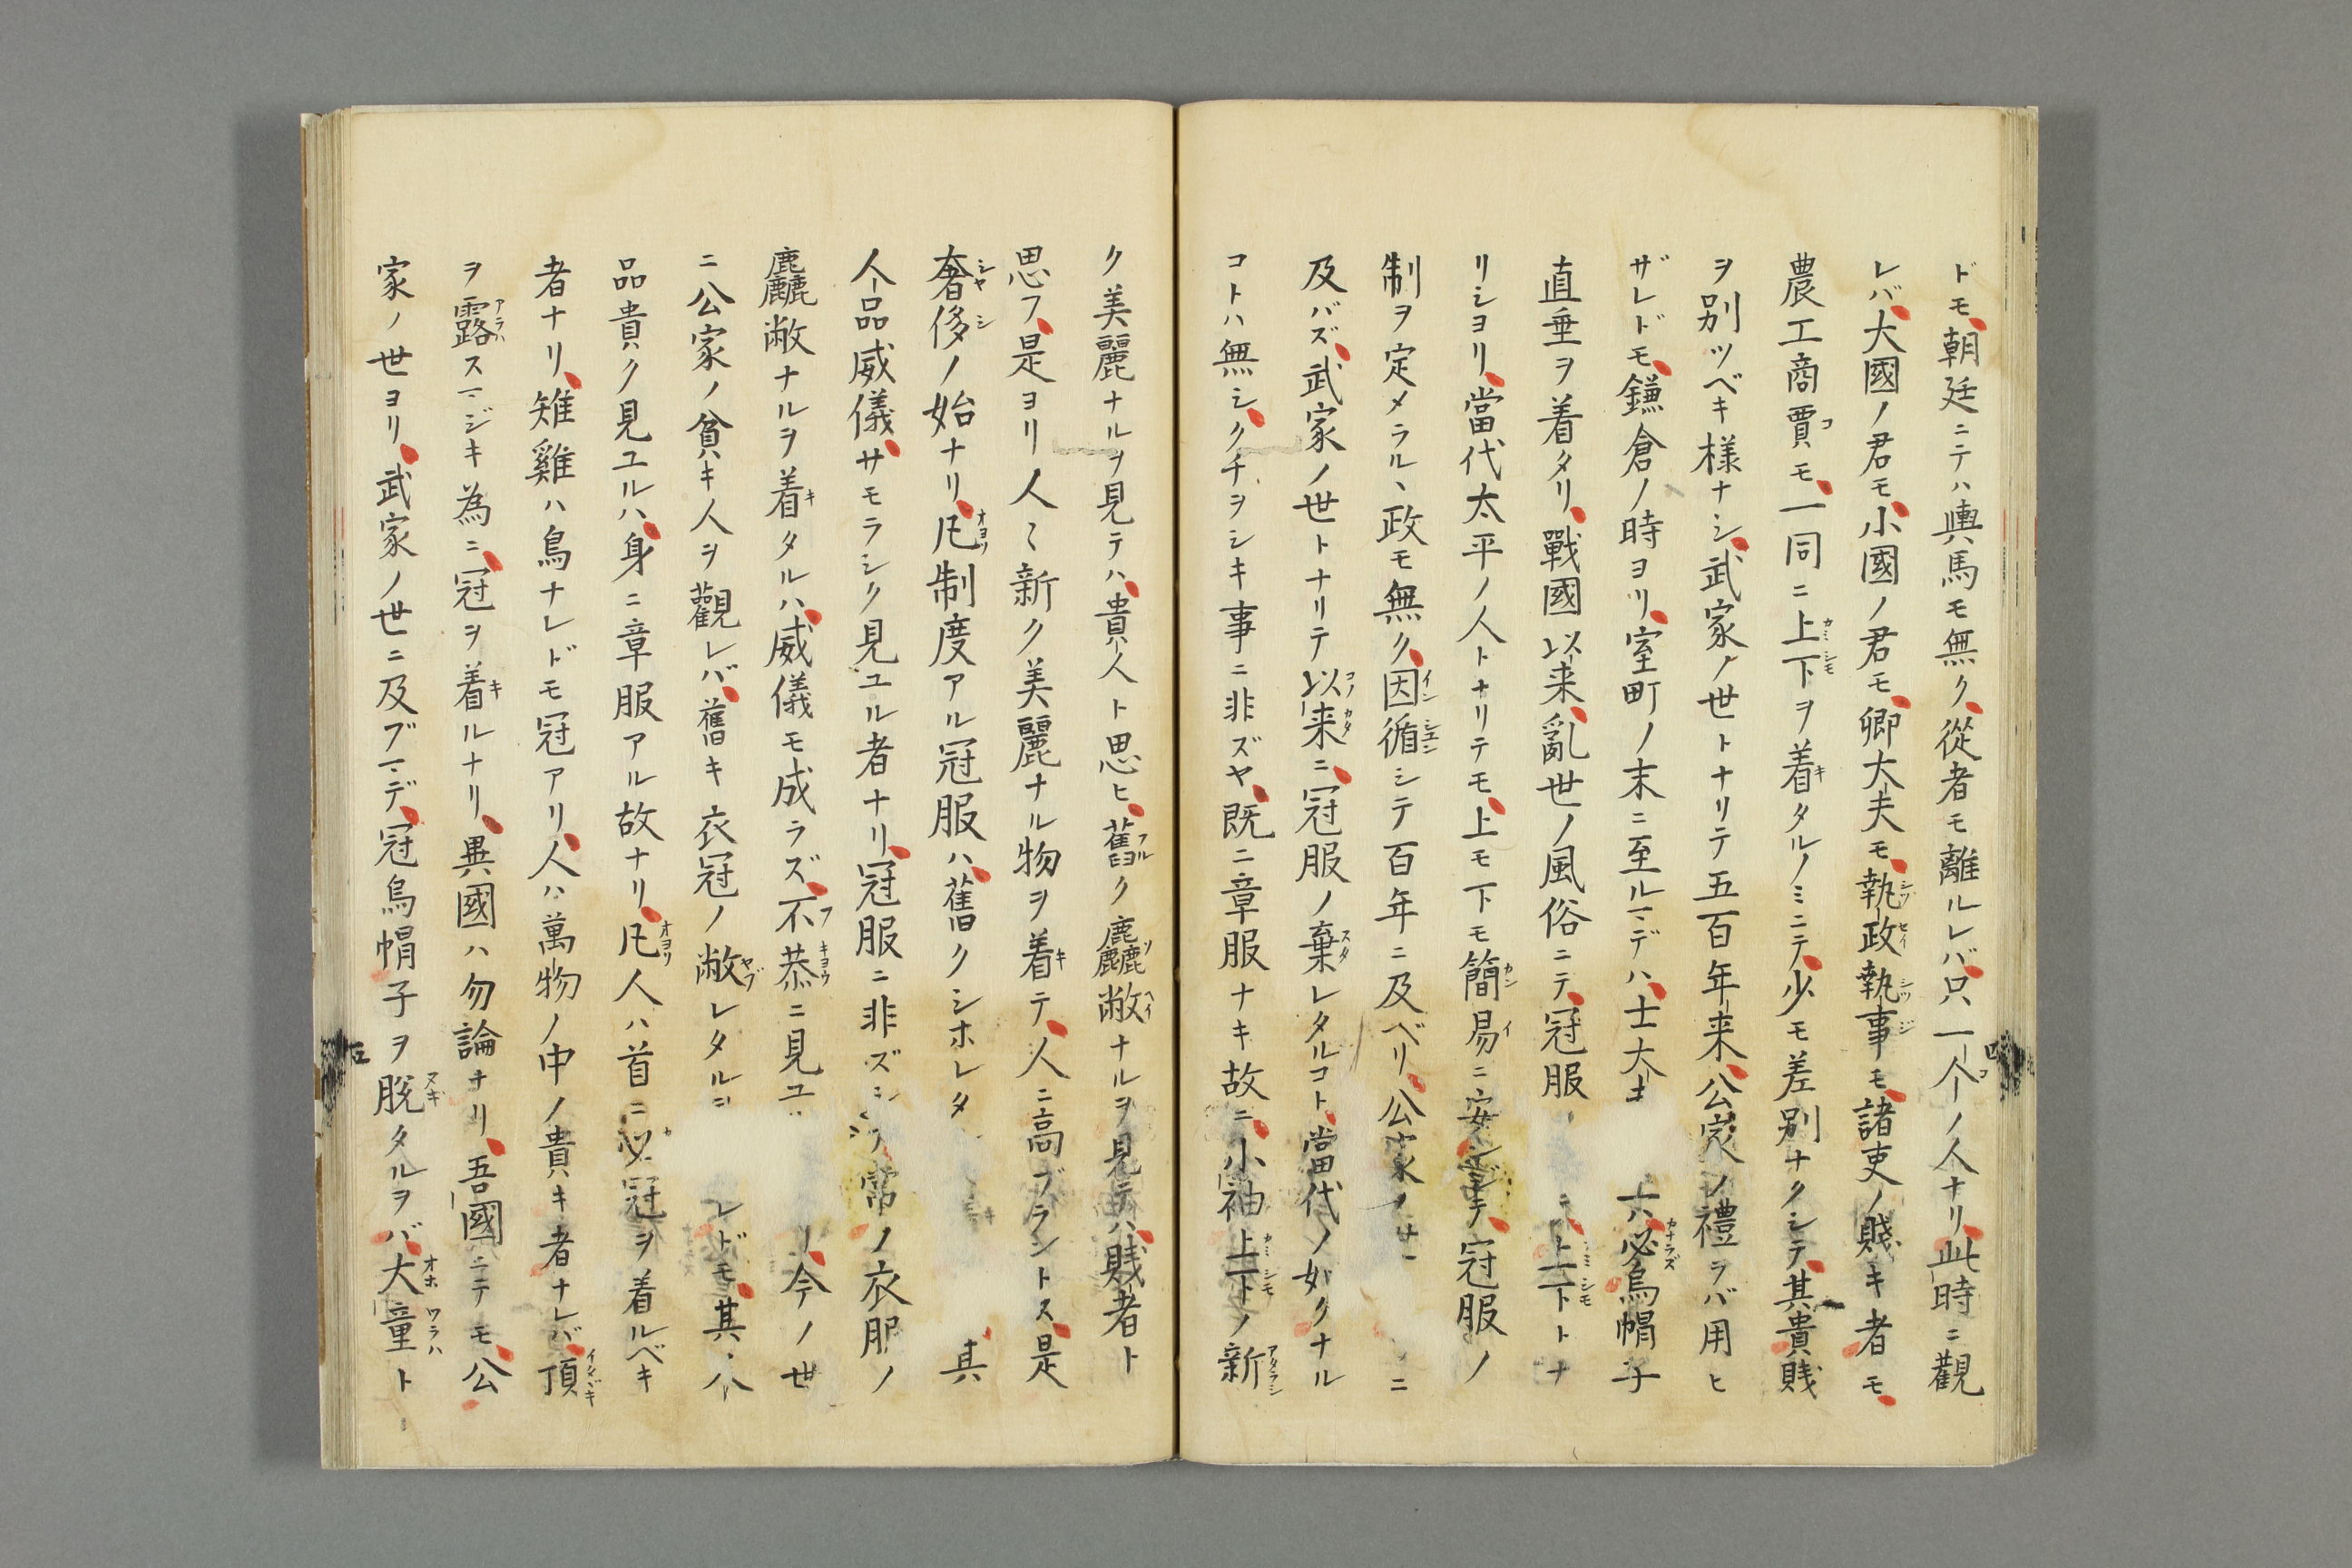 ドモ朝廷ニテハ輿馬モ無ク從者モ離ルレバ只一个ノ人ナリ此時ニ觀
レバ大國ノ君モ小國ノ君モ卿大夫モ執政執事モ諸吏ノ賤キ者モ
農工商賈モ一同ニ上下ヲ着タルノミニテ少モ差別ナクシテ其貴賤
ヲ別ツベキ樣ナシ武家ノ世トナリテ五百年来公家ノ禮ヲバ用ヒ
ザレドモ鎌倉ノ時ヨリ室町ノ末ニ至ルマデハ士大夫 必烏帽子
直垂ヲ着タリ戰國以来亂世ノ風俗ニテ冠服 上下トナ
リシヨリ當代太平ノ人トナリテモ上モ下モ簡易ニ安ンジテ冠服ノ
制ヲ定メラルヽ政モ無ク因循シテ百年ニ及ベリ公家ノ ニ
及バズ武家ノ世トナリテ以来ニ冠服ノ棄レタルコト當代ノ如クナル
コトハ無シクチヲシキ事ニ非ズヤ既ニ章服ナキ故ニ小袖上下ノ新
ク美麗ナルヲ見テハ貴人ト思ヒ舊ク麤敝ナルヲ見テハ賤者ト
思フ是ヨリ人〻新ク美麗ナル物ヲ着テ人ニ高ブラントス是
奢侈ノ始ナリ凡制度アル冠服ハ舊クシホレタ 其
人品威儀サモラシク見ユル者ナリ冠服ニ非ズシ 常ノ衣服ノ
麤敝ナルヲ着タルハ威儀モ成ラズ不恭ニ見ユ 今ノ世
ニ公家ノ貧キ人ヲ觀レバ舊キ衣冠ノ敝レタルニ レドモ其人
品貴ク見ユルハ身ニ章服アル故ナリ凡人ハ首ニ必冠ヲ着ルベキ
者ナリ雉雞ハ鳥ナレドモ冠アリ人ハ萬物ノ中ノ貴キ者ナレバ頂
ヲ露スマジキ為ニ冠ヲ着ルナリ異國ハ勿論ナリ吾國ニテモ公
家ノ世ヨリ武家ノ世ニ及ブマデ冠烏帽子ヲ脱タルヲバ大童ト